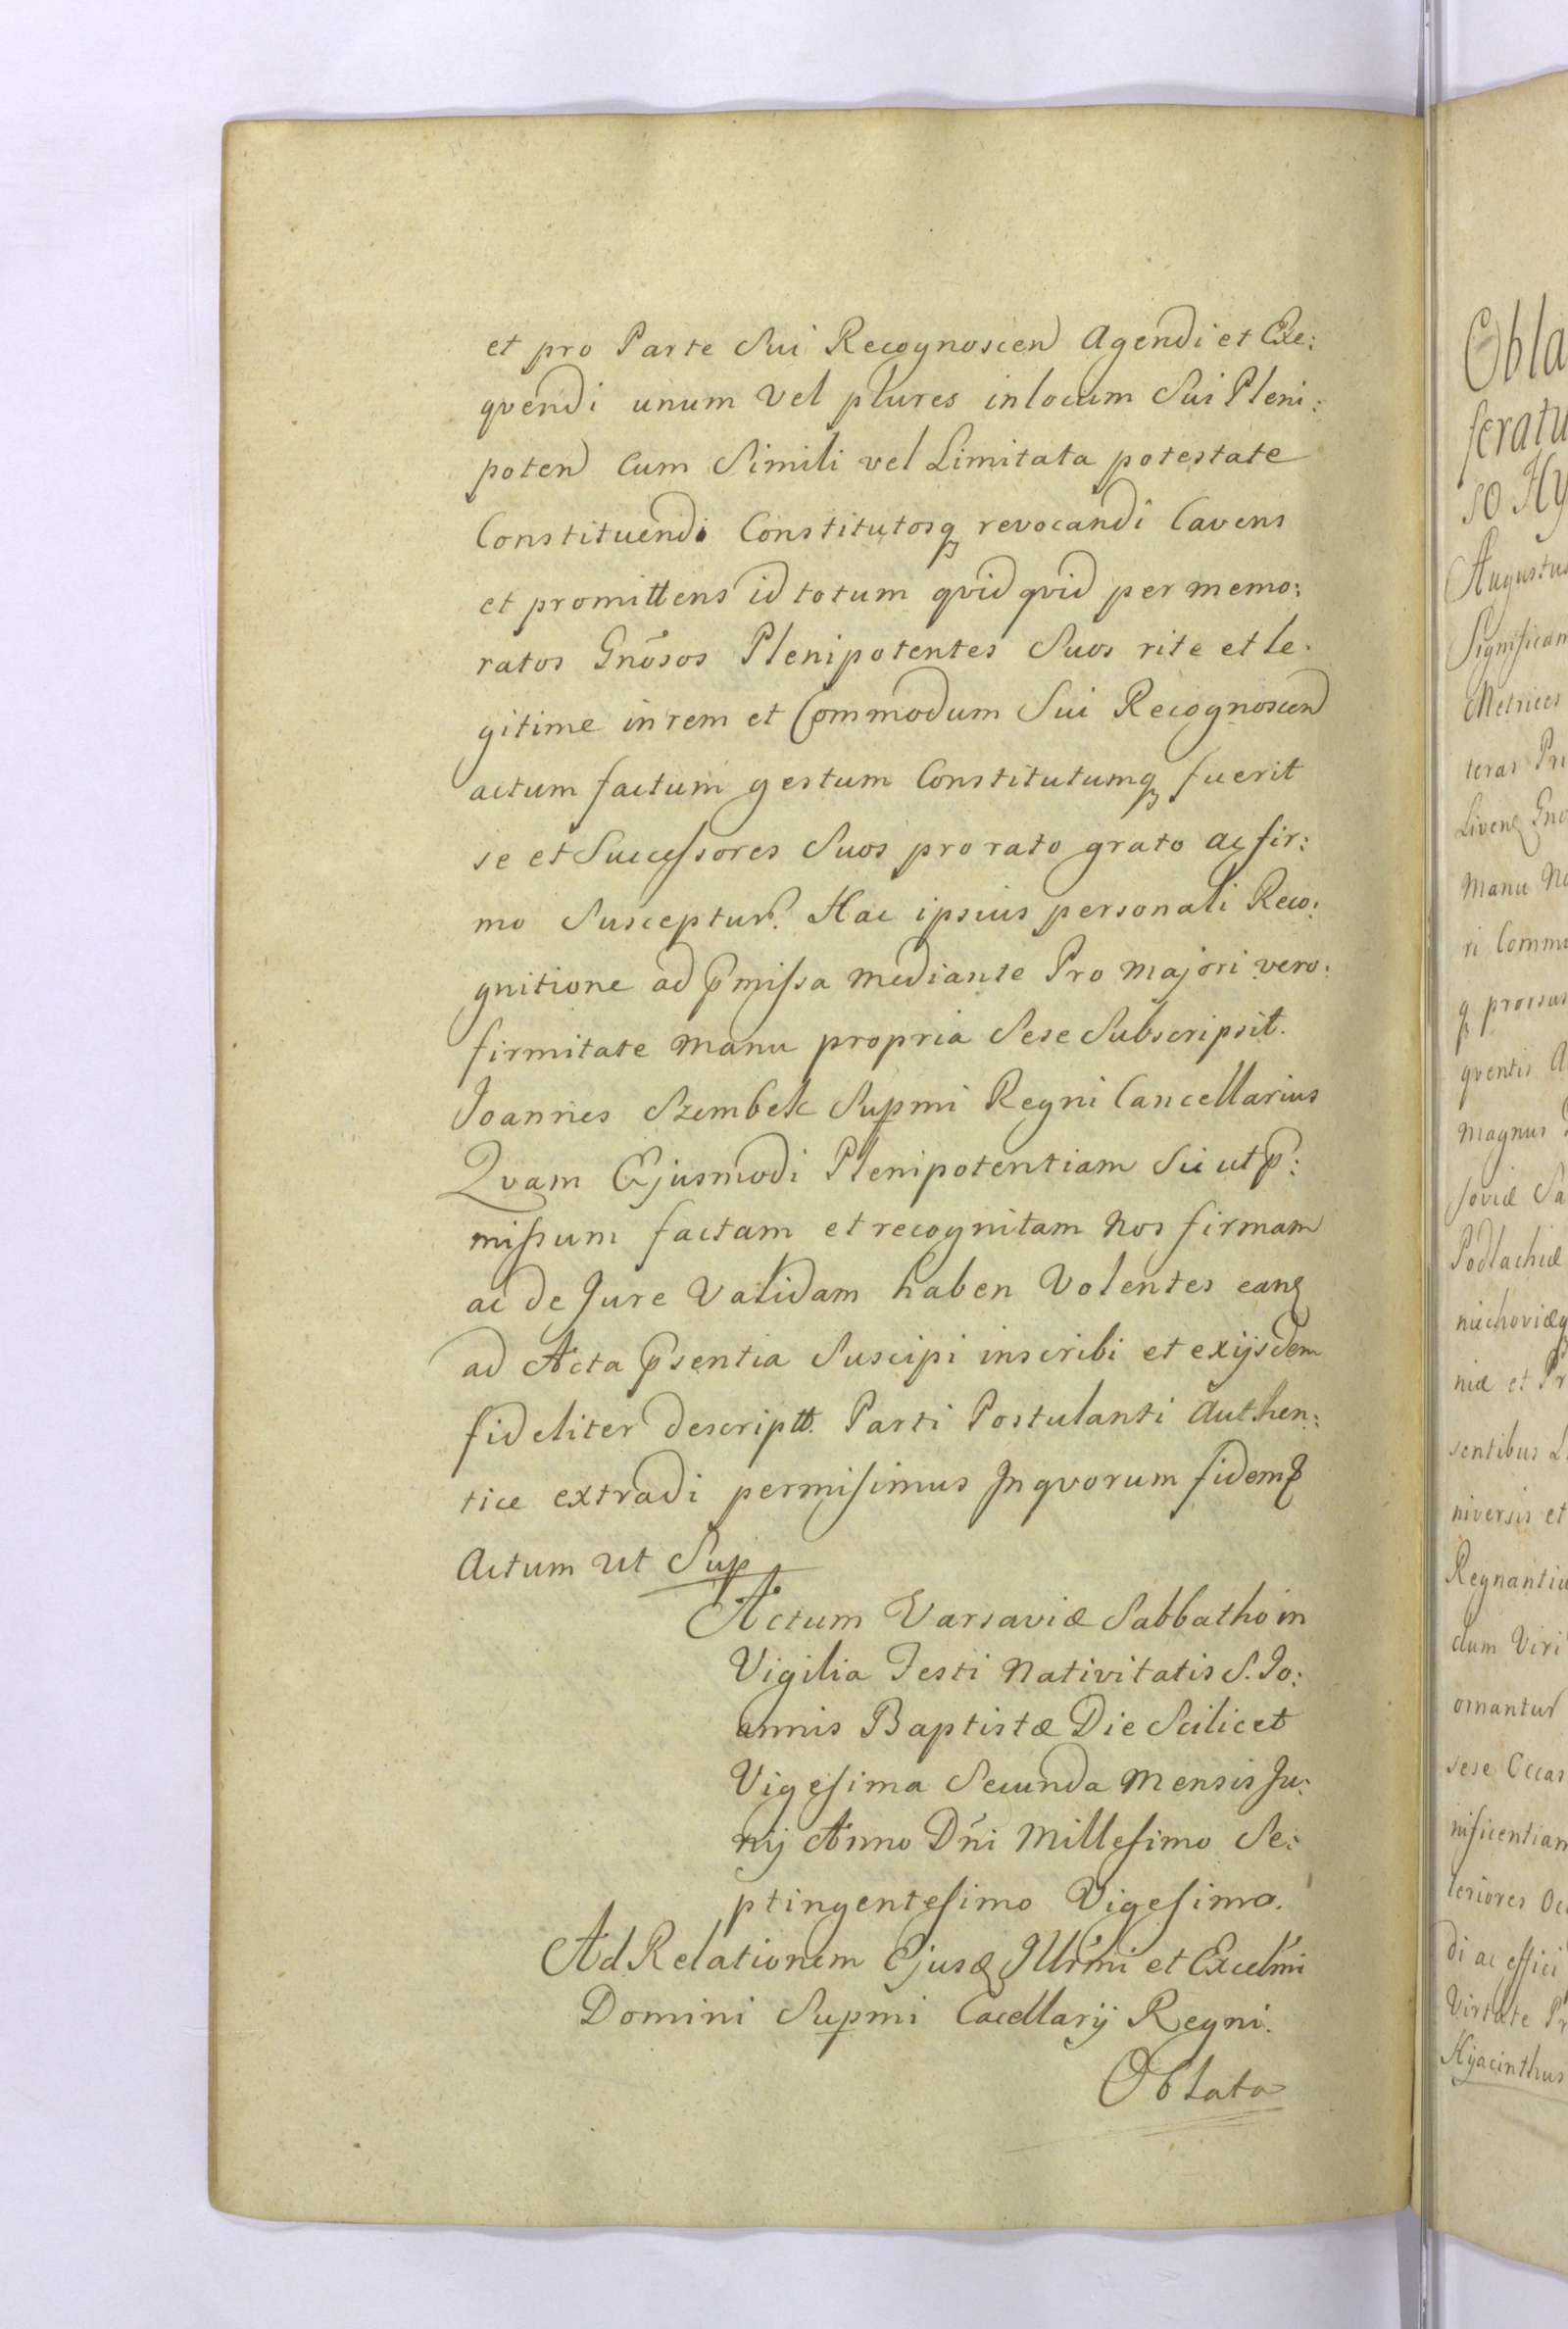 et pro Parte Sui Recognoscen Agendi et Exe:
qvendi unum vel plures in locum Sui Pleni:
poten Cum Simili vel Limitata potestate
Constituendi Constitutosq revocandi Cavens
et promittens id totum qvid qvid per memo:
ratos Gnõsos Plenipotentes Suos rite et le.
gitime in rem et Commodum Sui Recognoscen
actum factum gestum Constitutumq fuerit
se et Successores Suos pro rato grato ac fir:
mo Susceptur. Hac ipsius personali Reco:
gnitione ad p̃missa mediante Pro majori vero:
firmitate manu propria Sese Subscripsit.
Joannes Szembek Supmi Regni Cancellarius
Qvam Ejusmodi Plenipotentiam Sic ut p̃:
missum factam et recognitam Nos firmam
ac de Jure Validam haben Volentes eanq
ad Acta p̃sentia Suscipi inscribi et ex ijsdem
fideliter descriptt. Parti Postulanti Authen:
tice extradi permisimus In qvorum fidem
Actum ut Sup
Actum Varsaviæ Sabbatho in
Vigilia Festi Nativitatis S. Jo:
annis Baptistæ Die Scilicet
Vigesima Secunda Mensis Ju:
nij Anno Dn̄i Millesimo Se:
ptingentesimo Vigesimo.
Ad Relationem Ejusd Illr̃mi et Excelm̃i
Domini Supmi Cacellarij Regni.
Oblata
Obla
feratu
so Hy
Augustus
Significam
Metrices
teras Pri
Livenq Gno
Manu No
ri Commo
q prorsus
qventis A
Magnus D
soviæ Sa
Podlachiæ
niechoviæq
niæ et Pr
sentibus L
niversis et
Regnantiu
dum Viri
ornantur
sese Occas
nificentiam
teriores Oc
di ac effici
Virtute Pr
Hyacinthus